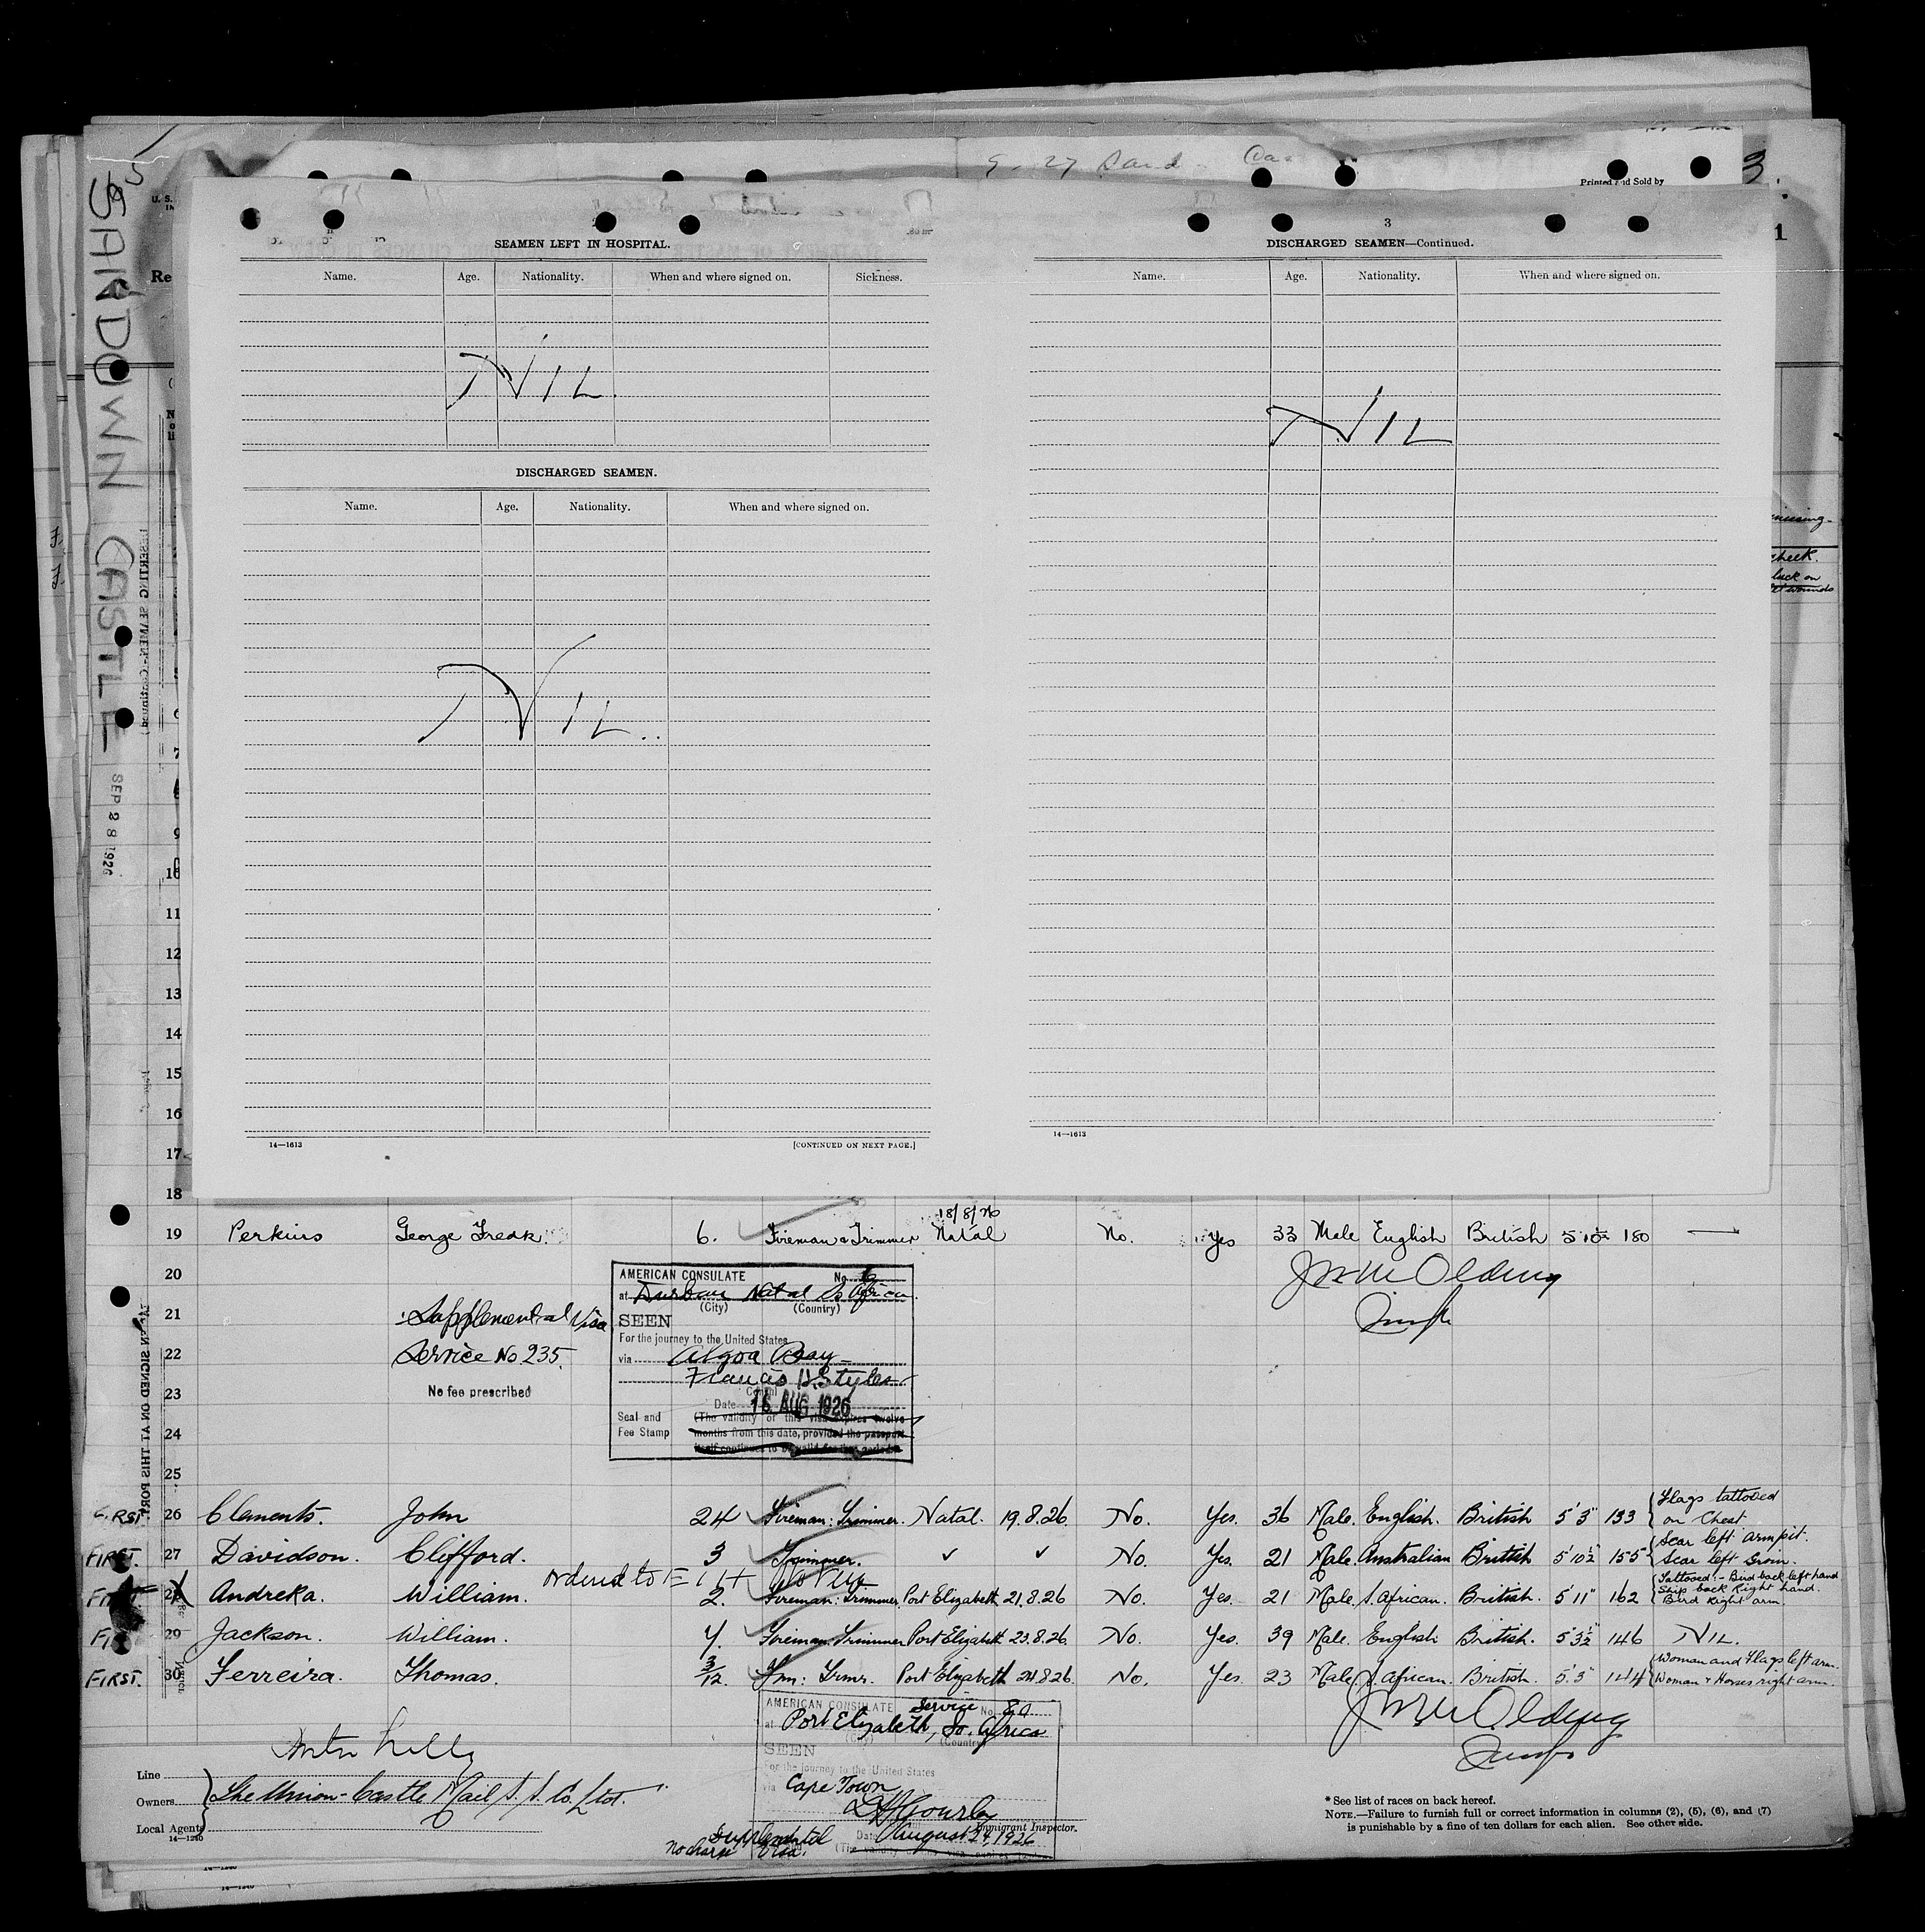 SANDOWN CASTLE
SEP 28 1926
9-27 Sand
Printed and Sold by
3.
SEAMEN LEFT IN HOSPITAL.
Name. Age. Nationality. When and where signed on. Sickness.
NIL.
DISCHARGED SEAMEN.
Name. Age. Nationality. When and where signed on.
NIL..
14—1613 [CONTINUED ON NEXT PAGE.]
3
DISCHARGED SEAMEN—Continued.
Name. Age. Nationality. When and where signed on.
NIL
14—1613
cheek.
back on
wounds
9
10
11
12
13
14
15
16
17
18
18/8/26
19 Perkins George Fredk. 6. Fireman & Trimmer Natal No. Yes 33 Male English British 5 10½ 180 —
20
21
22
23
24
25
Supplemental Visa
Service No 235.
No fee prescribed
AMERICAN CONSULATE No.
at Durban Natal So Africa.
(City) (Country)
SEEN
For the journey to the United States
via Algoa Bay
Francis H. Styles
Consul
Date 16 AUG 1926
Seal and Fee Stamp
(The validity of this visa expires twelve
months from this date, provided the passport
itself continues to be valid for that period.)
J W M Olding
FIRST. 26 Clements. John 24 Fireman: Trimmer. Natal. 19.8.26. No. Yes. 36 Male. English. British 5'3" 133 Flags tattooed on Chest
FIRST. 27 Davidson. Clifford. 3 Trimmer. ✓ ✓ No. Yes. 21 Male. Australian British 5'10½" 155 Scar left armpit. Scar left Groin.
ordered to E I
FIRST 28 Andreka. William. 2. Fireman: Trimmer. Port Elizabeth 21.8.26 No. Yes. 21 Male. S. African. British. 5'11" 162 Tattooed:- Bird back left hand Ship back Right hand. Bird Right arm.
29 Jackson. William. 4. Fireman Trimmer Port Elizabeth 23.8.26. No. Yes. 39 Male. English British. 5'3½" 146 NIL.
FIRST. 30 Ferreira. Thomas. 3/12. Fm: Trmr. Port Elizabeth 24.8.26. No. Yes. 23 Male. S. African. British. 5'5" 144 Woman and Flags left arm. Woman & Horses right arm.
J W M Olding
AMERICAN CONSULATE Service No. 80
at Port Elizabeth, So. Africa
(City) (Country)
SEEN
For the journey to the United States
via Cape Town
Immigrant Inspector.
Date August 24, 1926
Supplemental
No charge Visa.
Line
Owners The Union-Castle Mail S. S. Co. Ltd.
Local Agents
14—1240
* See list of races on back hereof.
NOTE.—Failure to furnish full or correct information in columns (2), (5), (6), and (7)
is punishable by a fine of ten dollars for each alien. See other side.
14—1240